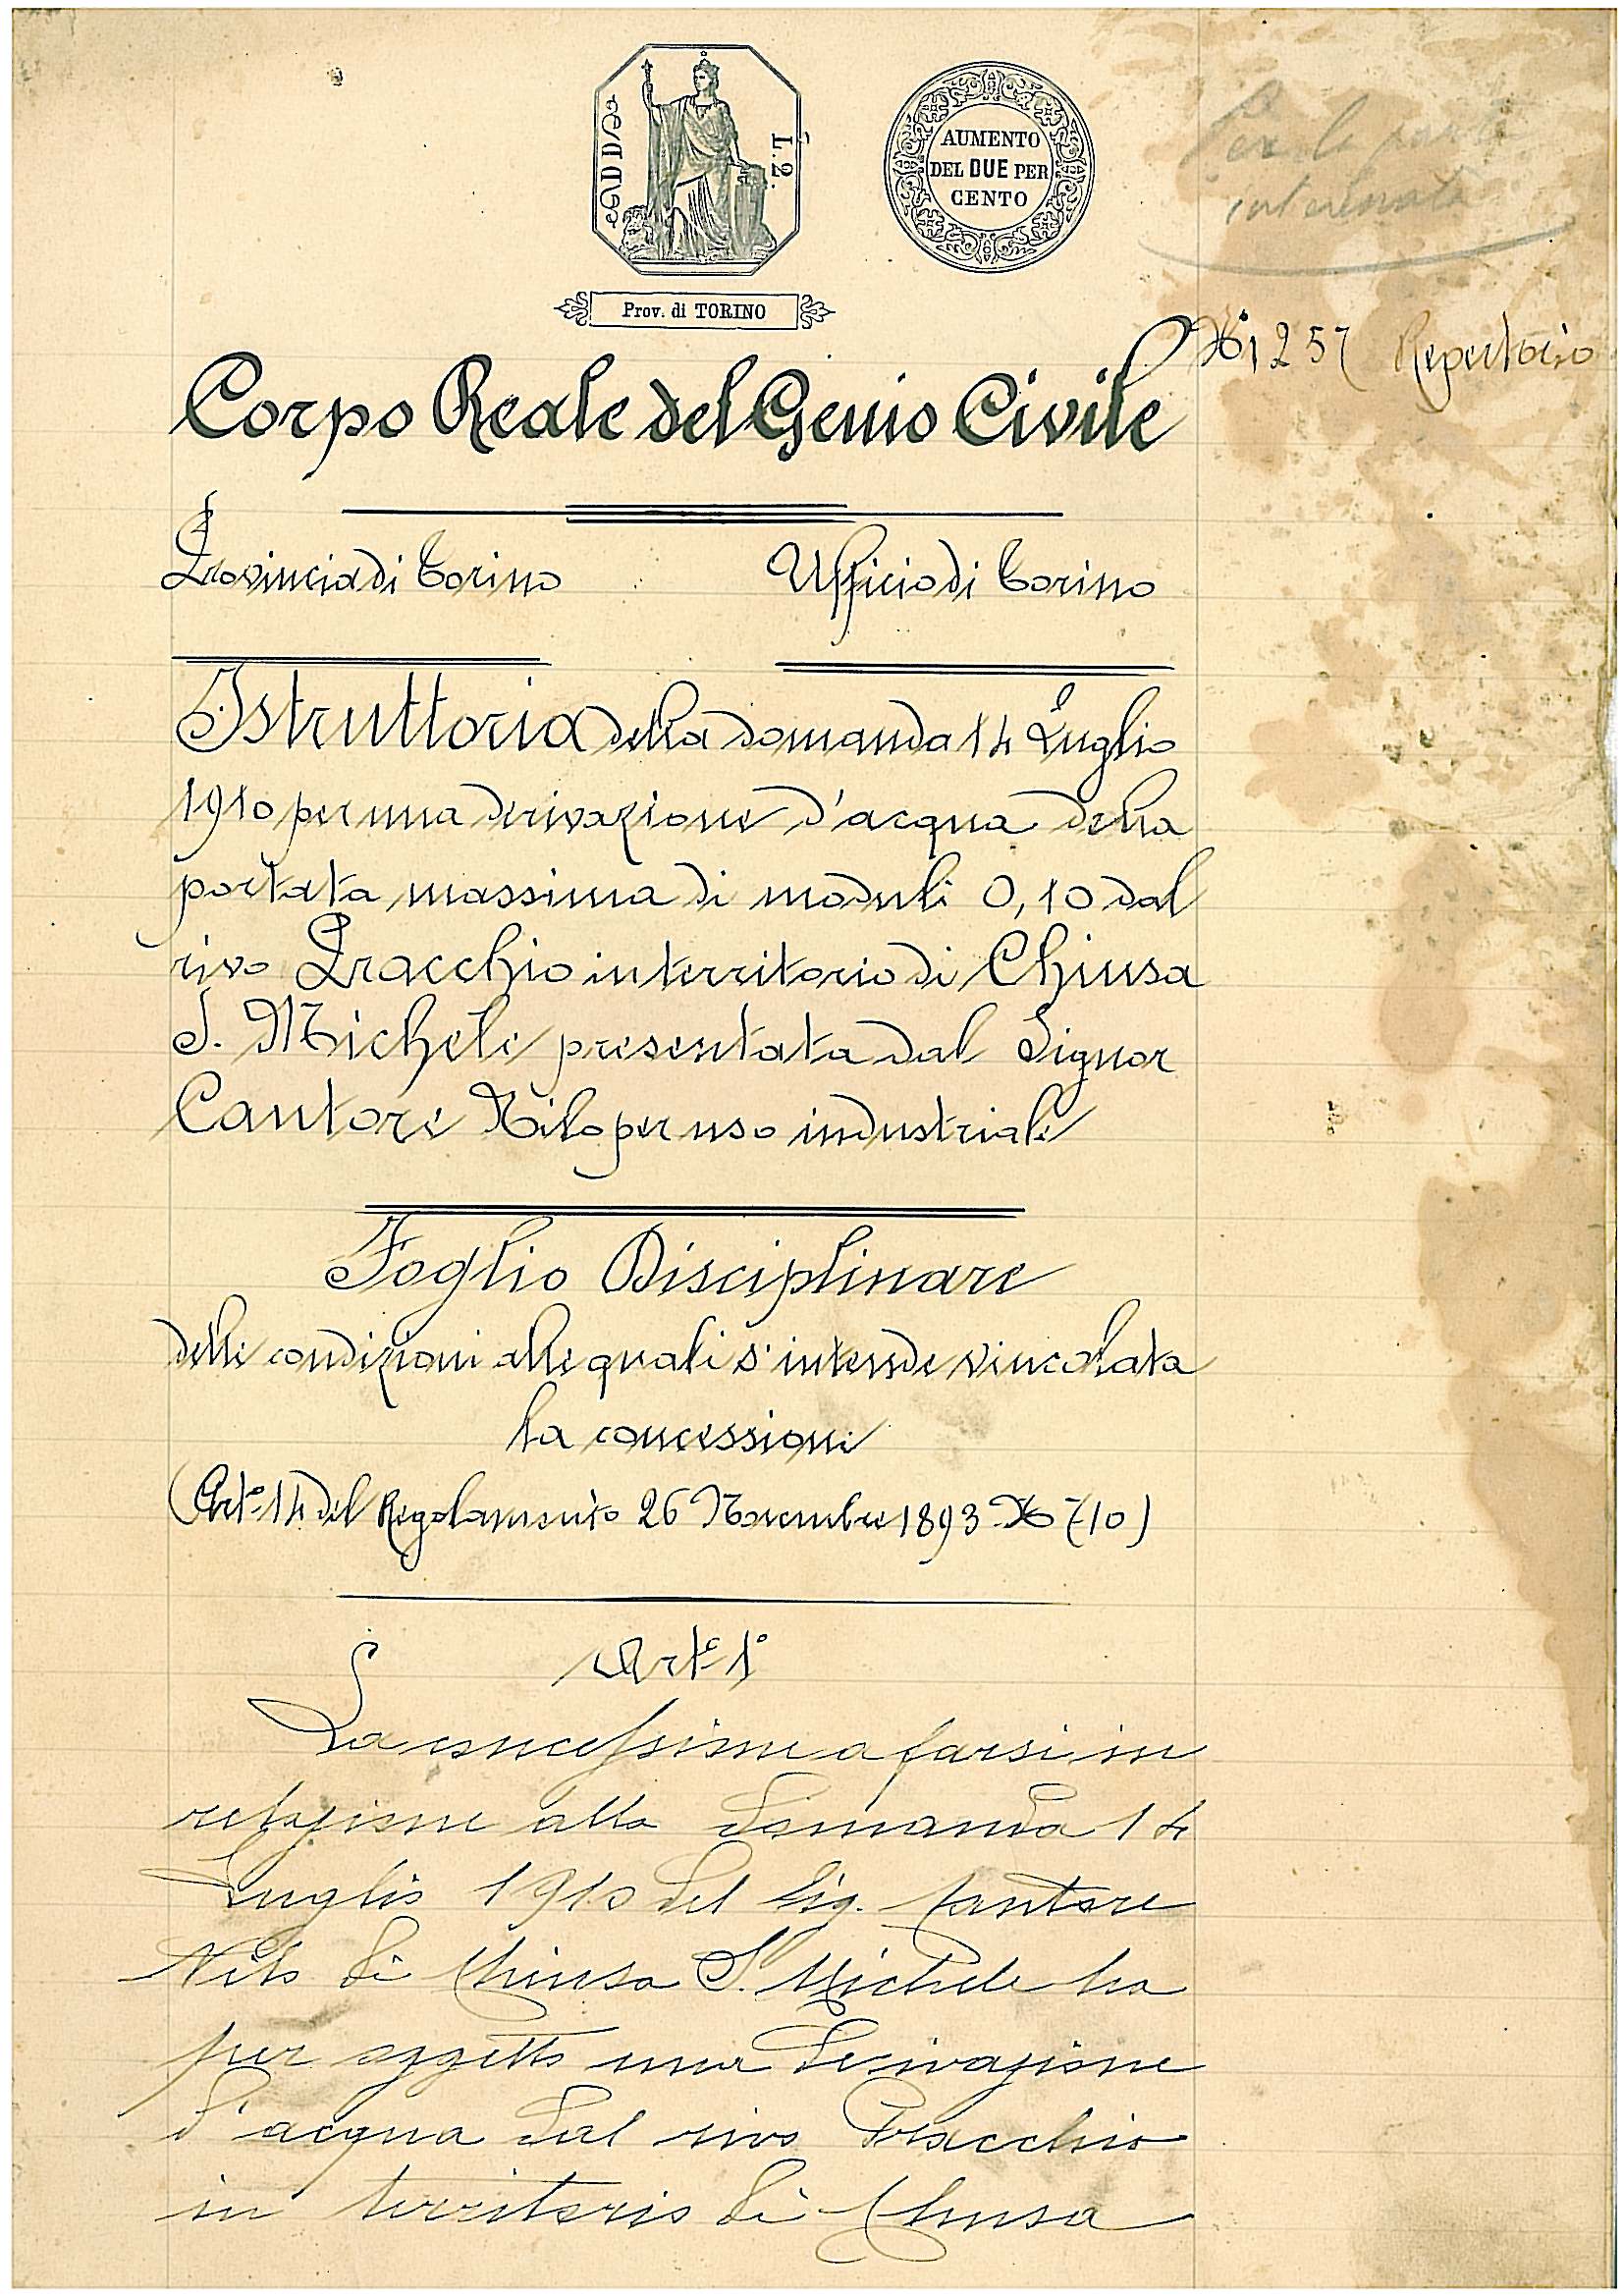 L.2.
AUMENTO
DEL DUE PER
CENTO
Per la parte
interessata
Prov. di TORINO
N° 1257 Repertorio
Corpo Reale del Genio Civile
Provincia di Torino Ufficio di Torino
Istruttoria della domanda 14 Luglio
1910 per una derivazione d'acqua della
portata massima di moduli 0,10 dal
rivo Pracchio in territorio di Chiusa
S. Michele presentata dal Signor
Cantore Nilo per uso industriale
Foglio Disciplinare
delle condizioni alle quali s'intende vincolata
la concessione
(Art° 14 del Regolamento 26 Novembre 1893 N° 710)
Art° 1°
La concessione a farsi in
relazione alla domanda 14
Luglio 1910 del Sig. Cantore
Nilo di Chiusa S. Michele ha
per oggetto una derivazione
d'acqua dal rivo Pracchio
in territorio di Chiusa